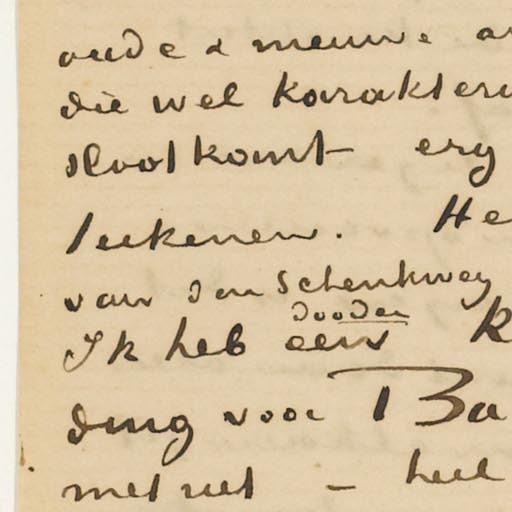 oude & nieuwe
die wel karakteri
slootkant erg
teekenen. He
van den Schenkweg
dooden
Ik heb een K
ding voor Ba
met riet – heel